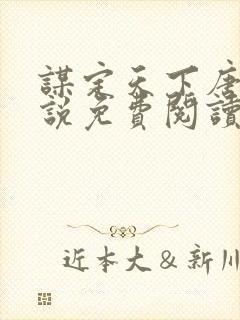 謀定天下唐
說免費閱讀
近本大&新川